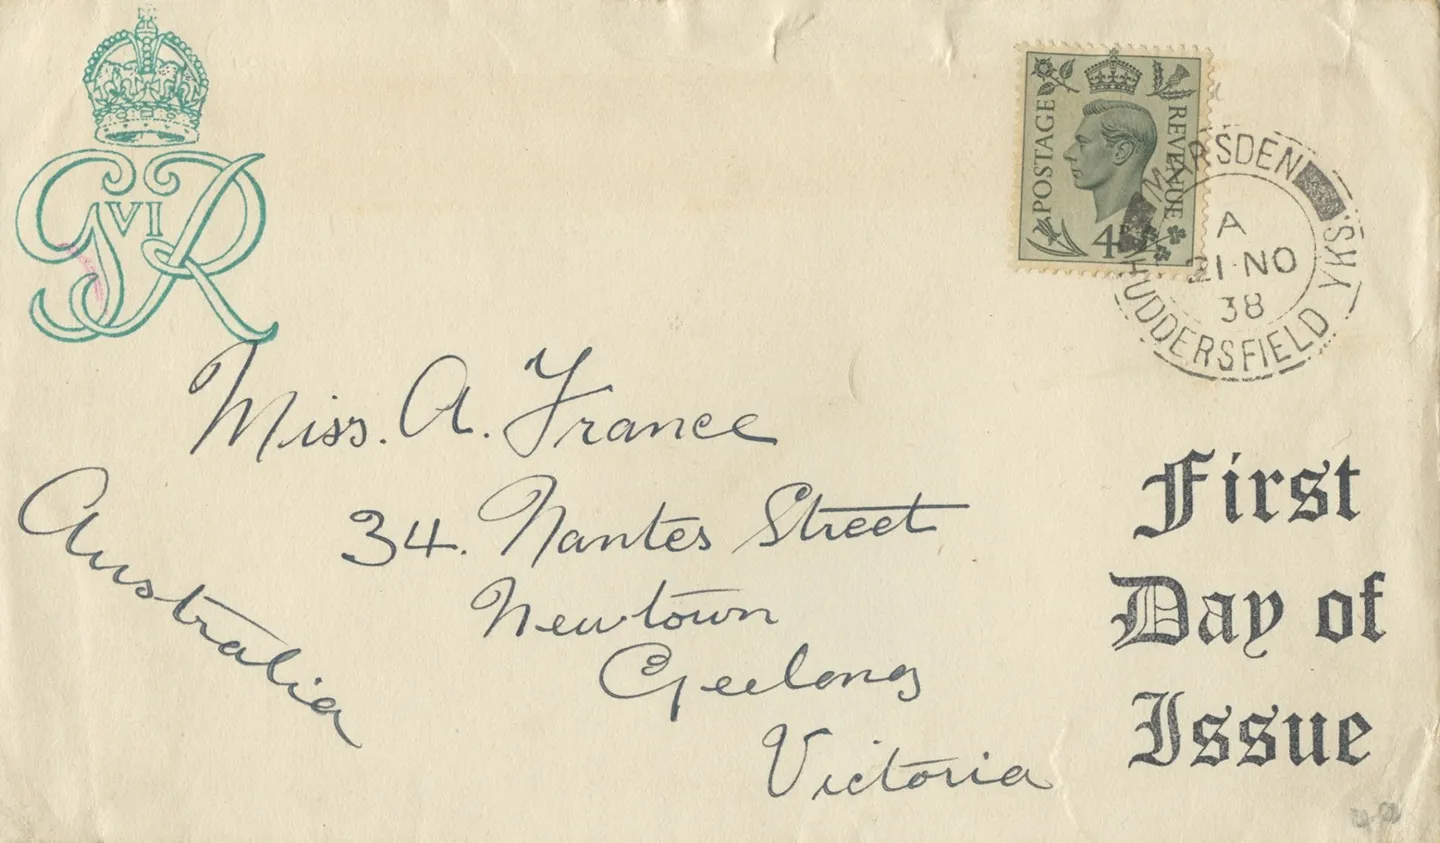 G VI R
POSTAGE
REVENUE
4D
MARSDEN
A
21 NO
38
HUDDERSFIELD YKS.
Miss. A. France
34. Nantes Street
Newtown
Geelong
Victoria
Australia
First
Day of
Issue